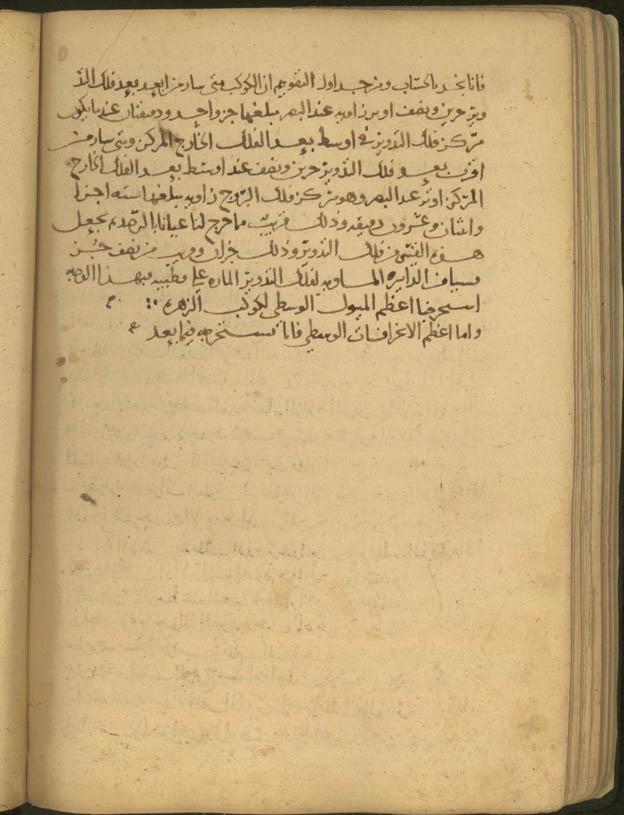 فانا نجد بالحساب ومن جداول التقويم ان الكوكب متى سار من ابعد بعد فلك التد
وير جزين ونصف اوتر زاويه عند البصر مبلغها جزو واحد ودقيقتان عند ما يكون
مركز فلك التدوير في اوسط بعد الفلك الخارج المركز ومتى سار من
اقرب بعد فلك التدوير جزين ونصف عند اوسط بعد الفلك الخارج
المركز اوتر عند البصر وهو مركز فلك البروج زاويه مبلغها سته اجزا
واثنان وعشرون دقيقه وذلك قريب مما خرج لنا عيانا بالرصد
هذه القسي من فلك التدوير وذلك جزان وقريب من نصف جز
الدايره المساويه لفلك التدوير الماره على قطبيه فبهذا الوجه
استخرجنا اعظم الميول الوسطى لكوكب الزهره
واما اعظم الانحرافات الوسطى فانا نستخرجه فيما بعد